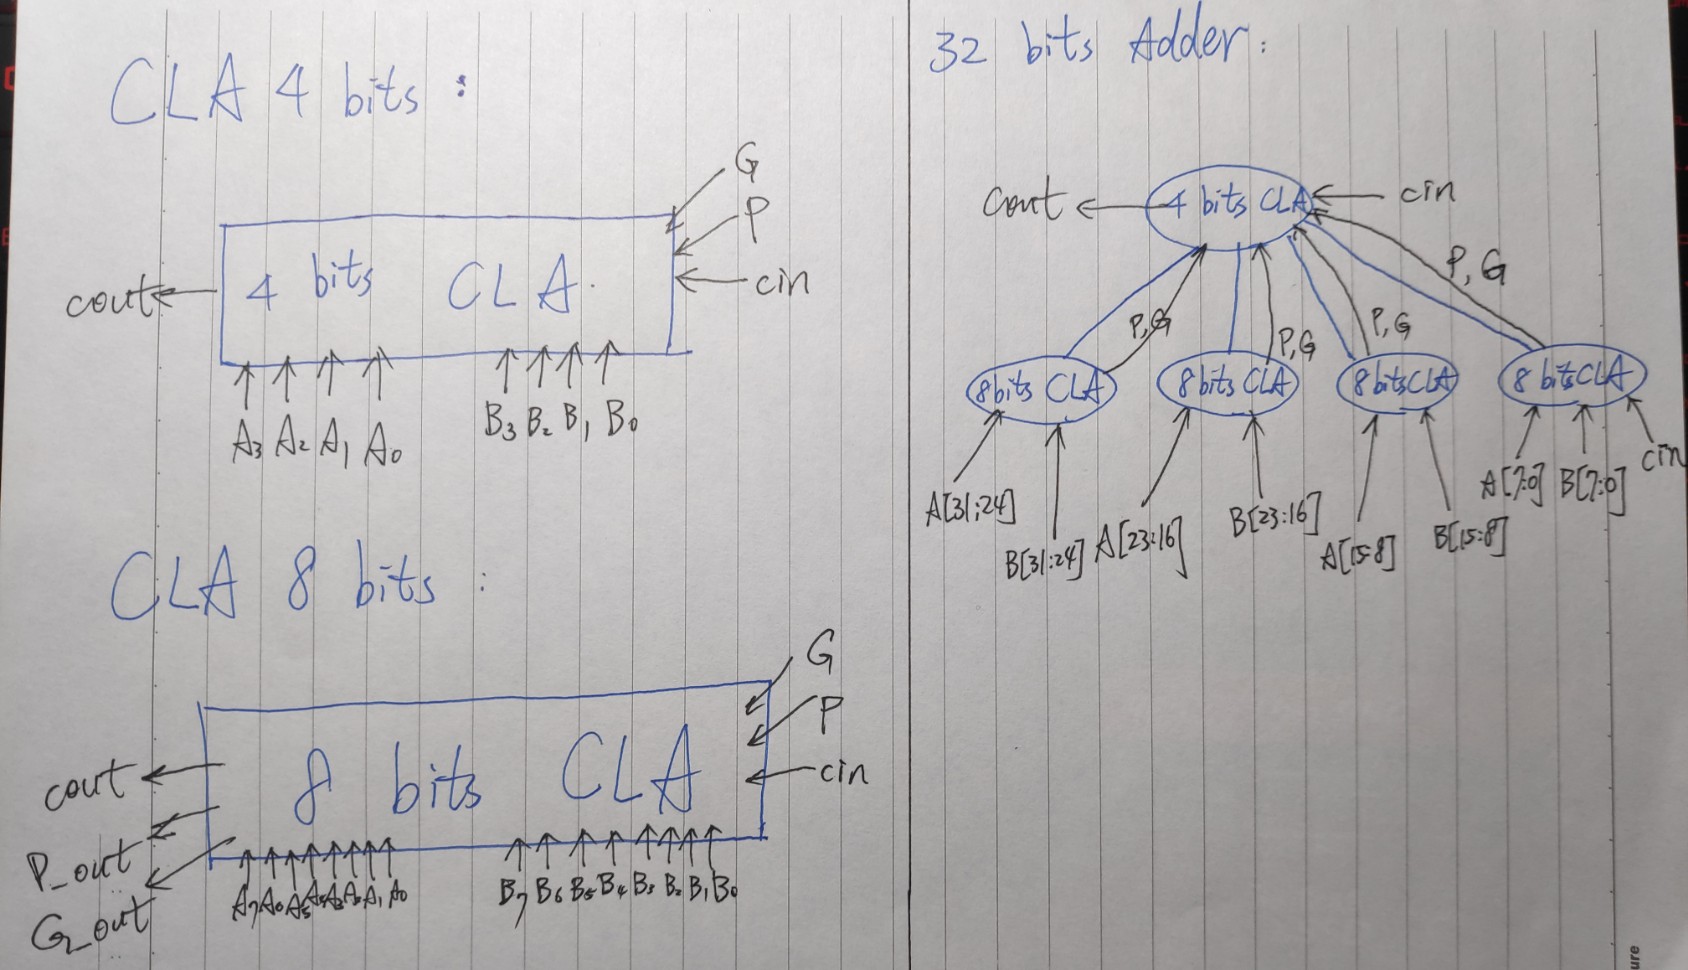 CLA 4 bits :
G
P
cin
4 bits CLA
cout
A3 A2 A1 A0 B3 B2 B1 B0
CLA 8 bits :
G
P
cin
8 bits CLA
cout
P_out
G_out
A7 A6 A5 A4 A3 A2 A1 A0 B7 B6 B5 B4 B3 B2 B1 B0
32 bits Adder :
cout 4 bits CLA cin
P,G P,G P,G P,G
8bits CLA 8bits CLA 8bitsCLA 8 bitsCLA
A[31:24] B[31:24] A[23:16] B[23:16] A[15:8] B[15:8] A[7:0] B[7:0] cin
ure